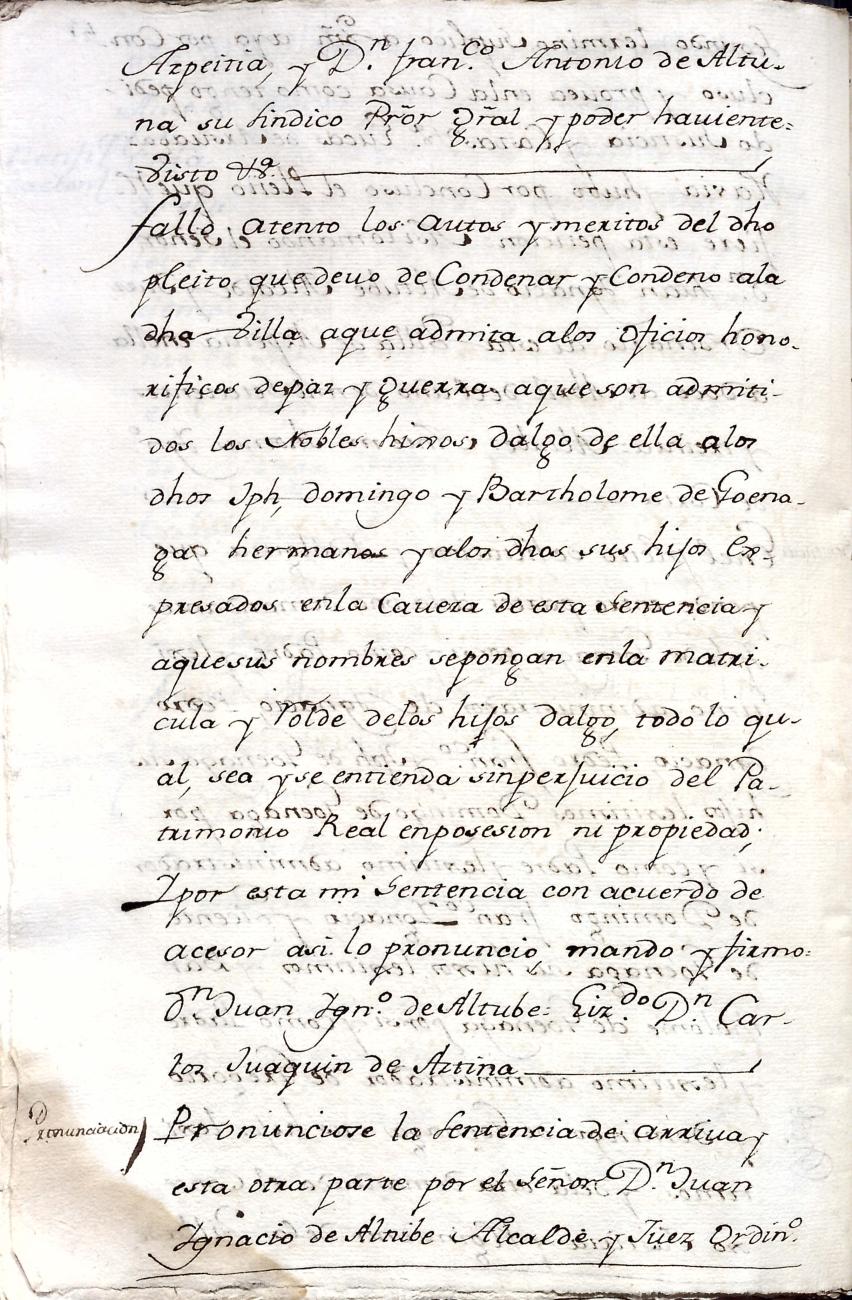 Azpeitia, y D.n fran.co Antonio de Altu-
na su sindico Prõr Grãl y poder haviente=
Visto &ª.
fallo atento los autos y meritos del dho
pleito, que devo de Condenar y Condeno ala
dha Villa aque admita alos Oficios hono-
rificos de paz y Guerra aque son admiti-
dos los Nobles hixos, dalgo de ella alos
dhos Jph, domingo y Bartholome de Goena-
ga hermanos y alos dhos sus hijos Ex-
presados enla Caveza de esta Sentencia y
aque sus nombres sepongan enla matri-
cula y Rolde delos hijos dalgo, todo lo qu-
al, sea y se entienda sinperjuicio del Pa-
trimonio Real enposesion ni propiedad;
Ypor esta mi Sentencia con acuerdo de
acesor asi lo pronuncio, mando y firmo=
D.n Juan Ign.o de Altube= Liz.do D.n Car-
los Juaquin de Aztina
Pronunciacion
Pronunciose la Sentencia de arriva y
esta otra parte por el Señor D.n Juan
Ignacio de Altube Alcalde y Juez Ordin.o